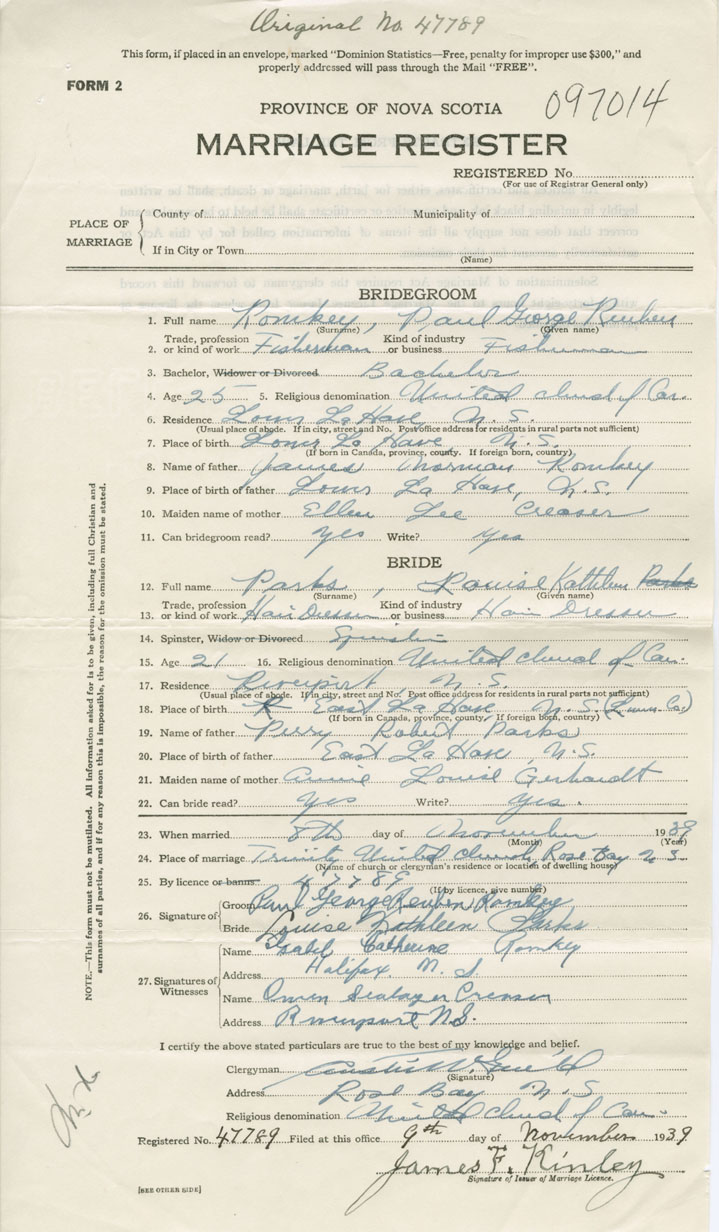 Original No. 47789
This form, if placed in an envelope, marked "Dominion Statistics—Free, penalty for improper use $300," and
properly addressed will pass through the Mail "FREE".
FORM 2
097014
PROVINCE OF NOVA SCOTIA
MARRIAGE REGISTER
REGISTERED No.
(For use of Registrar General only)
PLACE OF MARRIAGE
County of Municipality of
If in City or Town
(Name)
BRIDEGROOM
1. Full name Romkey, Paul George Reuben
(Surname) (Given name)
Trade, profession Kind of industry
2. or kind of work Fisherman or business Fisherman
3. Bachelor, Widower or Divorced Bachelor
4. Age 25 5. Religious denomination United Church of Can.
6. Residence Lower La Have N.S.
(Usual place of abode. If in city, street and No. Post office address for residents in rural parts not sufficient)
7. Place of birth Lower La Have N.S.
(If born in Canada, province, county. If foreign born, country)
8. Name of father James Norman Romkey
9. Place of birth of father Lower La Have, N.S.
10. Maiden name of mother Ellen Lee Creaser
11. Can bridegroom read? Yes Write? Yes
BRIDE
12. Full name Parks, Louise Kathleen Parks
(Surname) (Given name)
Trade, profession Kind of industry
13. or kind of work Hair Dresser or business Hair Dresser
14. Spinster, Widow or Divorced Spinster
15. Age 21 16. Religious denomination United Church of Can.
17. Residence Riverport, N.S.
(Usual place of abode. If in city, street and No. Post office address for residents in rural parts not sufficient)
18. Place of birth East La Have N.S. (Lunen. Co.)
(If born in Canada, province, county. If foreign born, country)
19. Name of father Perry Robert Parks
20. Place of birth of father East La Have, N.S.
21. Maiden name of mother Annie Louise Gerhardt
22. Can bride read? Yes Write? Yes.
23. When married 8th day of November 1939
(Month) (Year)
24. Place of marriage Trinity United Church, Rose Bay N.S.
(Name of church or clergyman's residence or location of dwelling house)
25. By licence or banns 47789
(If by licence, give number)
26. Signature of
Groom Paul George Reuben Romkey
Bride Louise Kathleen Parks
27. Signatures of Witnesses
Name Isabel Catherine Romkey
Address Halifax N.S.
Name Owen Creaser
Address Riverport N.S.
I certify the above stated particulars are true to the best of my knowledge and belief.
Clergyman
(Signature)
Address Rose Bay N.S.
Religious denomination United Church of Can.
Registered No. 47789 Filed at this office 9th day of November 1939
James F. Kinley
Signature of Issuer of Marriage Licence.
[SEE OTHER SIDE]
NOTE.—This form must not be mutilated. All information asked for is to be given, including full Christian and
surnames of all parties, and if for any reason this is impossible, the reason for the omission must be stated.